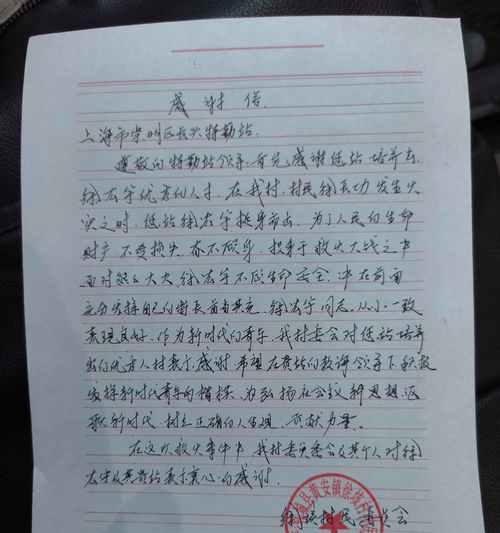 感谢信
上海市崇明区长兴特勤站
尊敬的特勤站领导：首先感谢您站培养出
徐宏宇优秀的人才，在我村，村民徐长功发生火
灾之时，您站徐宏宇挺身而出，为了人民的生命
财产不受损失，奋不顾身，投身于救火大战之中
面对熊熊大火，徐宏宇不顾生命安全，冲在前面
充分发挥自己的特长 徐宏宇同志，从小一致
表现良好，作为新时代的青年，我村委会对您站培养
出的优秀人才表示感谢，希望在贵站的教诲领导下积极
发挥新时代青年的榜样，为弘扬社会主义新思想，讴
歌新时代，树立正确的人生观，贡献力量。
在这次救火事件中，我村委员会及其个人对徐
宏宇及贵站表示衷心的感谢
县黄安镇徐垓村
徐垓村民委员会